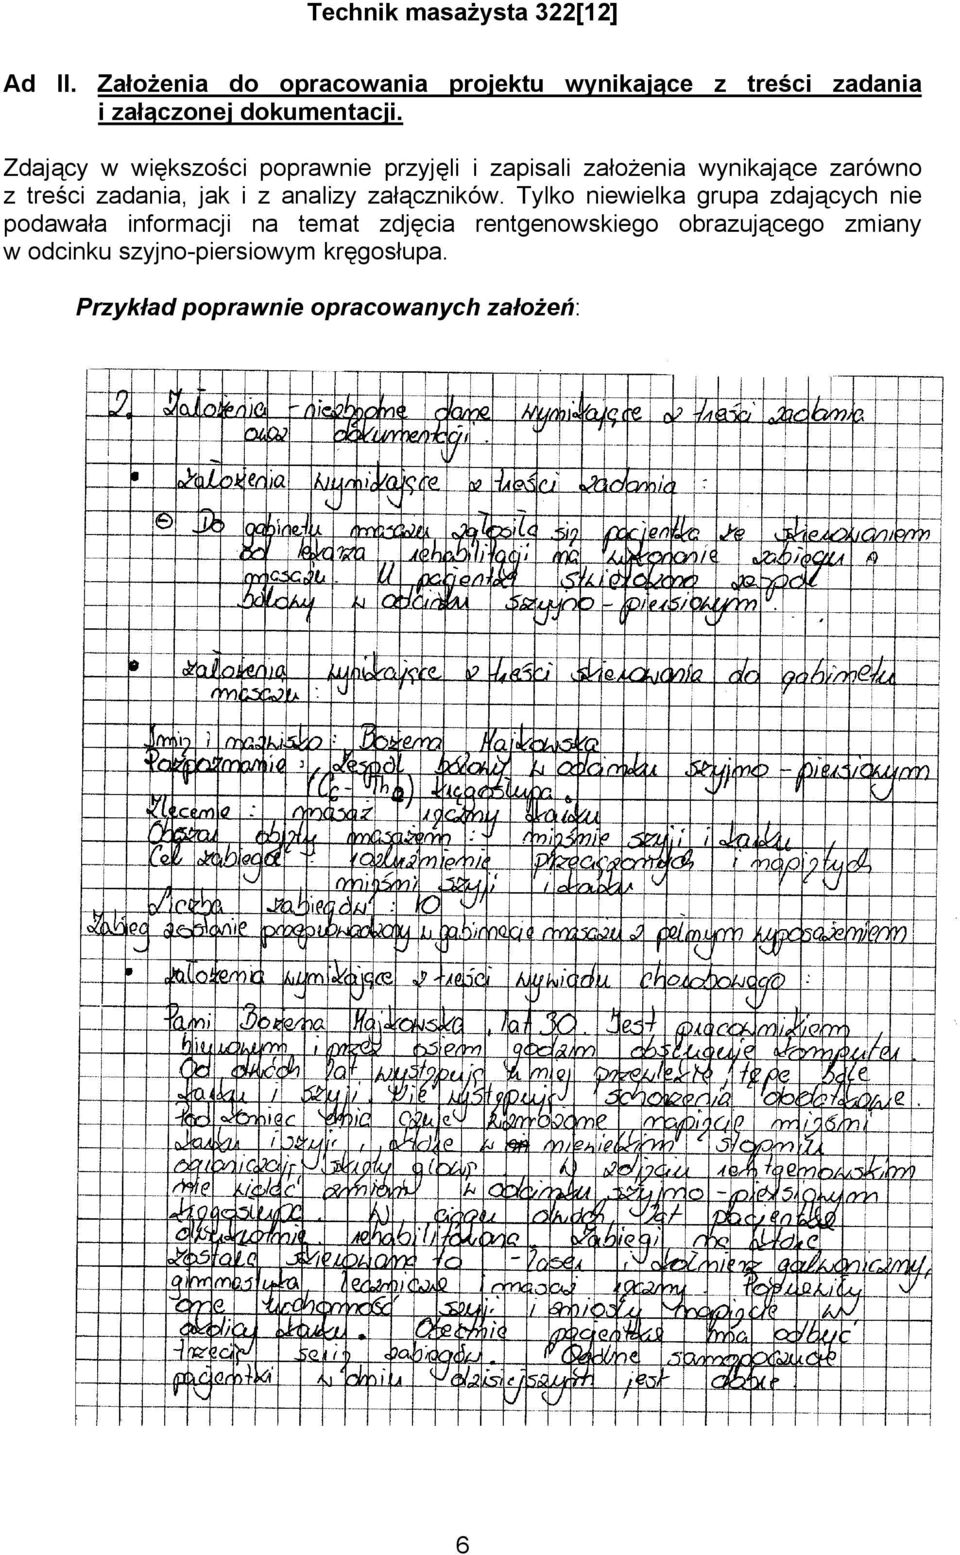 Technik masażysta 322[12]
Ad II. Założenia do opracowania projektu wynikające z treści zadania
i załączonej dokumentacji.
Zdający w większości poprawnie przyjęli i zapisali założenia wynikające zarówno
z treści zadania, jak i z analizy załączników. Tylko niewielka grupa zdających nie
podawała informacji na temat zdjęcia rentgenowskiego obrazującego zmiany
w odcinku szyjno-piersiowym kręgosłupa.
Przykład poprawnie opracowanych założeń:
2. Założenia - niezbędne dane wynikające z treści zadania
oraz dokumentacji.
• założenia wynikające z treści zadania :
Do gabinetu masażu zgłosiła się pacjentka ze skierowaniem
od lekarza rehabilitacji na wykonanie zabiegu
masażu. U pacjentki stwierdzono zespół
bólowy w odcinku szyjno - piersiowym.
• założenia wynikające z treści skierowania do gabinetu
masażu :
Imię i nazwisko : Bożena Majkowska
Rozpoznanie : Zespół bólowy w odcinku szyjno - piersiowym
kręgosłupa.
Zlecenie : masaż ręczny karku
Obszar objęty masażem : mięśnie szyji i karku,
Cel zabiegu : rozluźnienie przeciążonych i napiętych
mięśni szyji i karku
Liczba zabiegów : 10
Zabieg zostanie przeprowadzony w gabinecie masażu z pełnym wyposażeniem
• założenia wynikające z treści wywiadu chorobowego :
Pani Bożena Majkowska, lat 30. Jest pracownikiem
biurowym i przez osiem godzin obsługuje komputer.
Od dwóch lat występują u niej przewlekłe, tępe bóle
karku i szyji. Nie występują schorzenia dodatkowe.
Pod koniec dnia czuje wzmożone napięcie mięśni
karku i szyji, które w niewielkim stopniu
ograniczają skręty głowy. W zdjęciu rentgenowskim
nie widać zmian w odcinku szyjno - piersiowym
kręgosłupa. W ciągu dwóch lat pacjentka
dwukrotnie rehabilitowana. Zabiegi na które
została skierowana to - laser, kołnierz galwaniczny,
gimnastyka lecznicza i masaż ręczny. Poprawiły
one ruchomość szyji i zmniosły napięcie w
okolicy karku. Obecnie pacjentka ma odbyć
trzecią serię zabiegów. Ogólne samopoczucie
pacjentki w dniu dzisiejszym jest dobre.
6